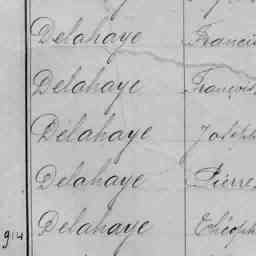 Delahaye Francis
Delahaye François
Delahaye Joseph
Delahaye Pierre
914 Delahaye Théoph